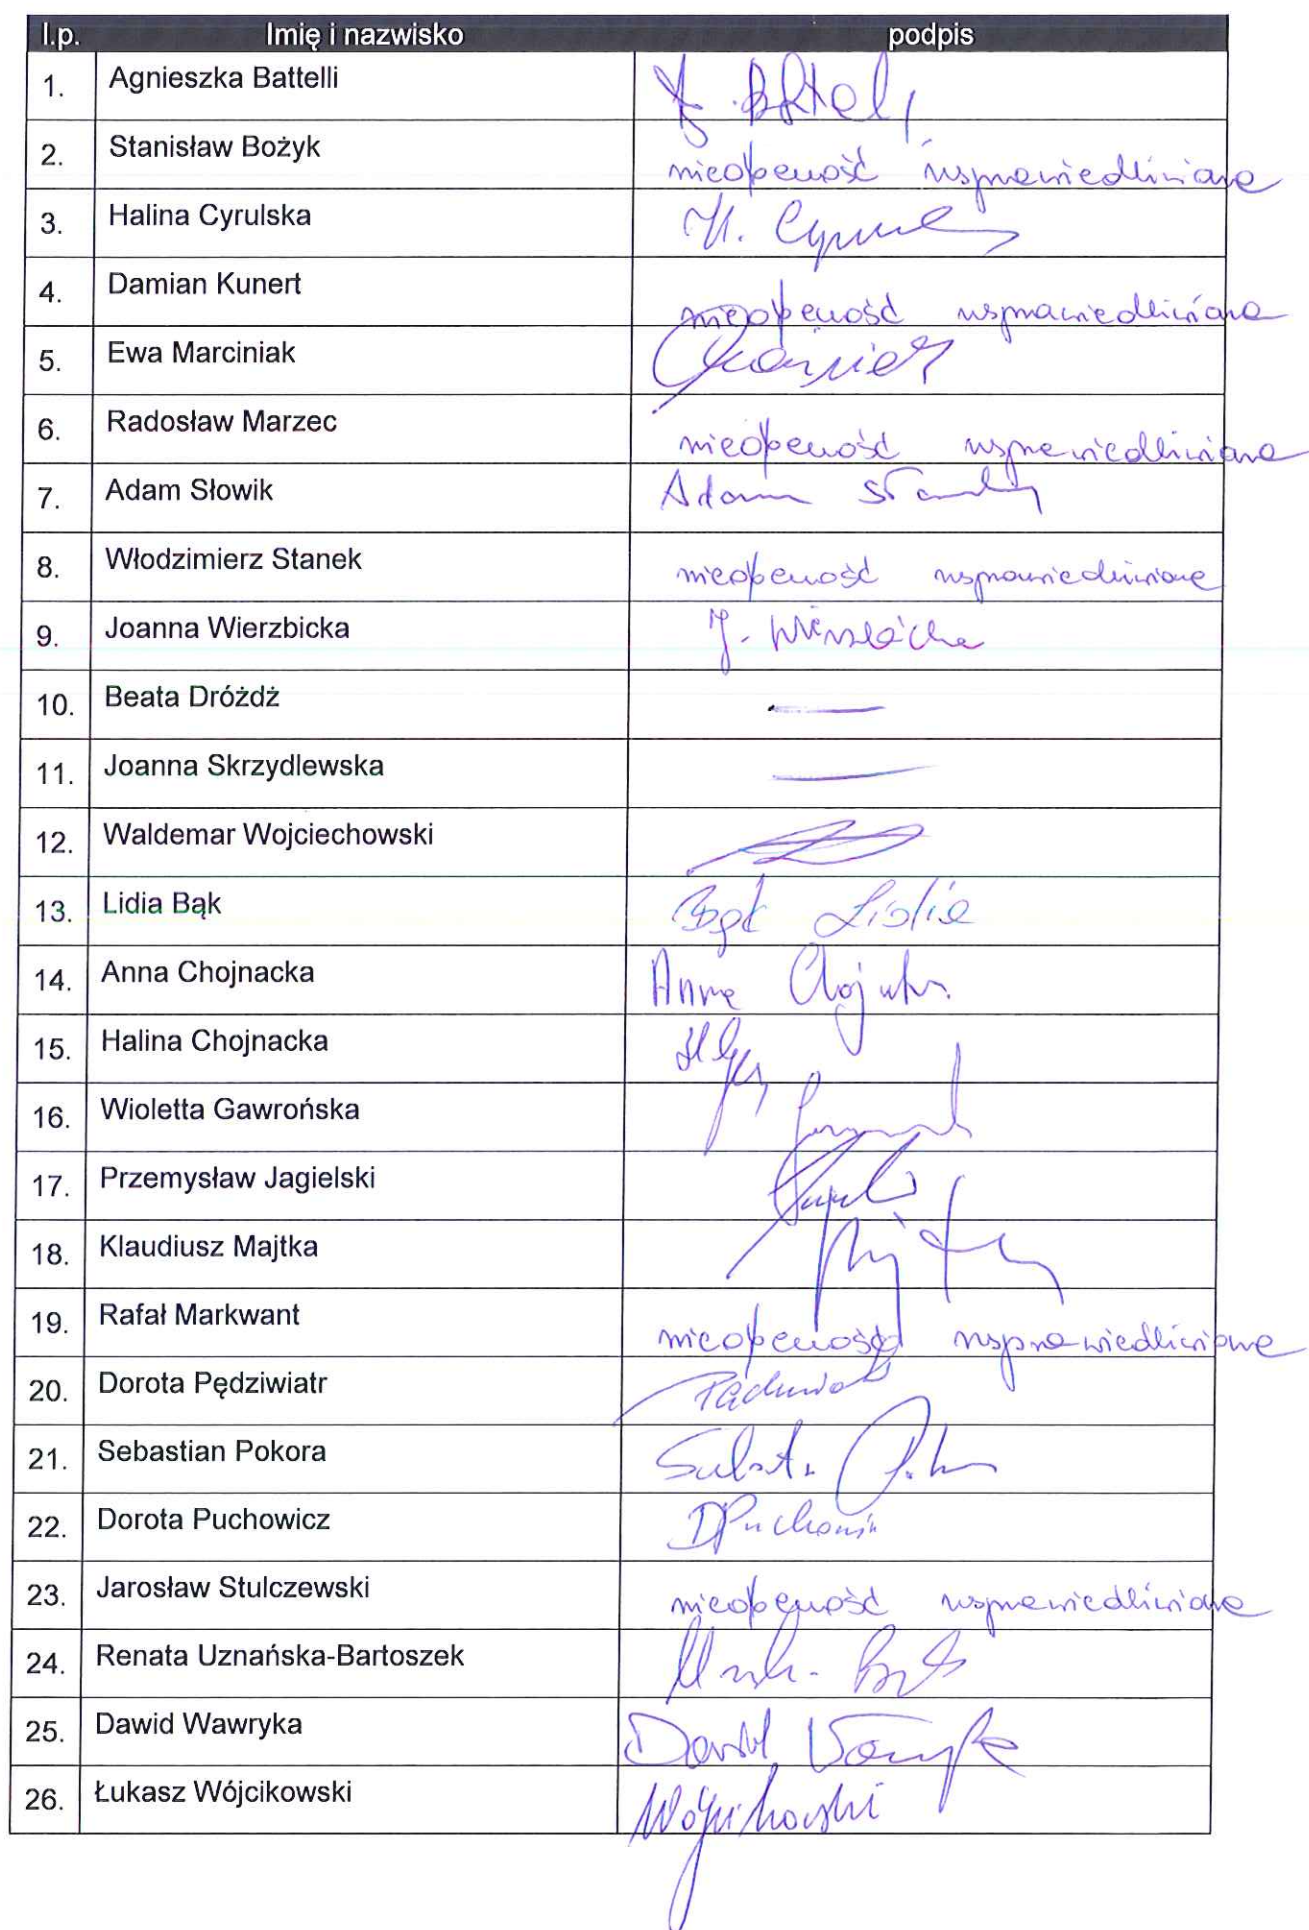 l.p. Imię i nazwisko podpis
1. Agnieszka Battelli
2. Stanisław Bożyk nieobecność usprawiedliwiona
3. Halina Cyrulska H. Cyrul
4. Damian Kunert nieobecność usprawiedliwiona
5. Ewa Marciniak
6. Radosław Marzec nieobecność usprawiedliwiona
7. Adam Słowik Adam Słowik
8. Włodzimierz Stanek nieobecność usprawiedliwiona
9. Joanna Wierzbicka J. Wierzbicka
10. Beata Dróżdż —
11. Joanna Skrzydlewska —
12. Waldemar Wojciechowski
13. Lidia Bąk Bąk Lidia
14. Anna Chojnacka Anna
15. Halina Chojnacka
16. Wioletta Gawrońska
17. Przemysław Jagielski
18. Klaudiusz Majtka
19. Rafał Markwant nieobecność usprawiedliwiona
20. Dorota Pędziwiatr
21. Sebastian Pokora
22. Dorota Puchowicz DPuchowicz
23. Jarosław Stulczewski nieobecność usprawiedliwiona
24. Renata Uznańska-Bartoszek
25. Dawid Wawryka Dawid Wawryka
26. Łukasz Wójcikowski Wójcikowski